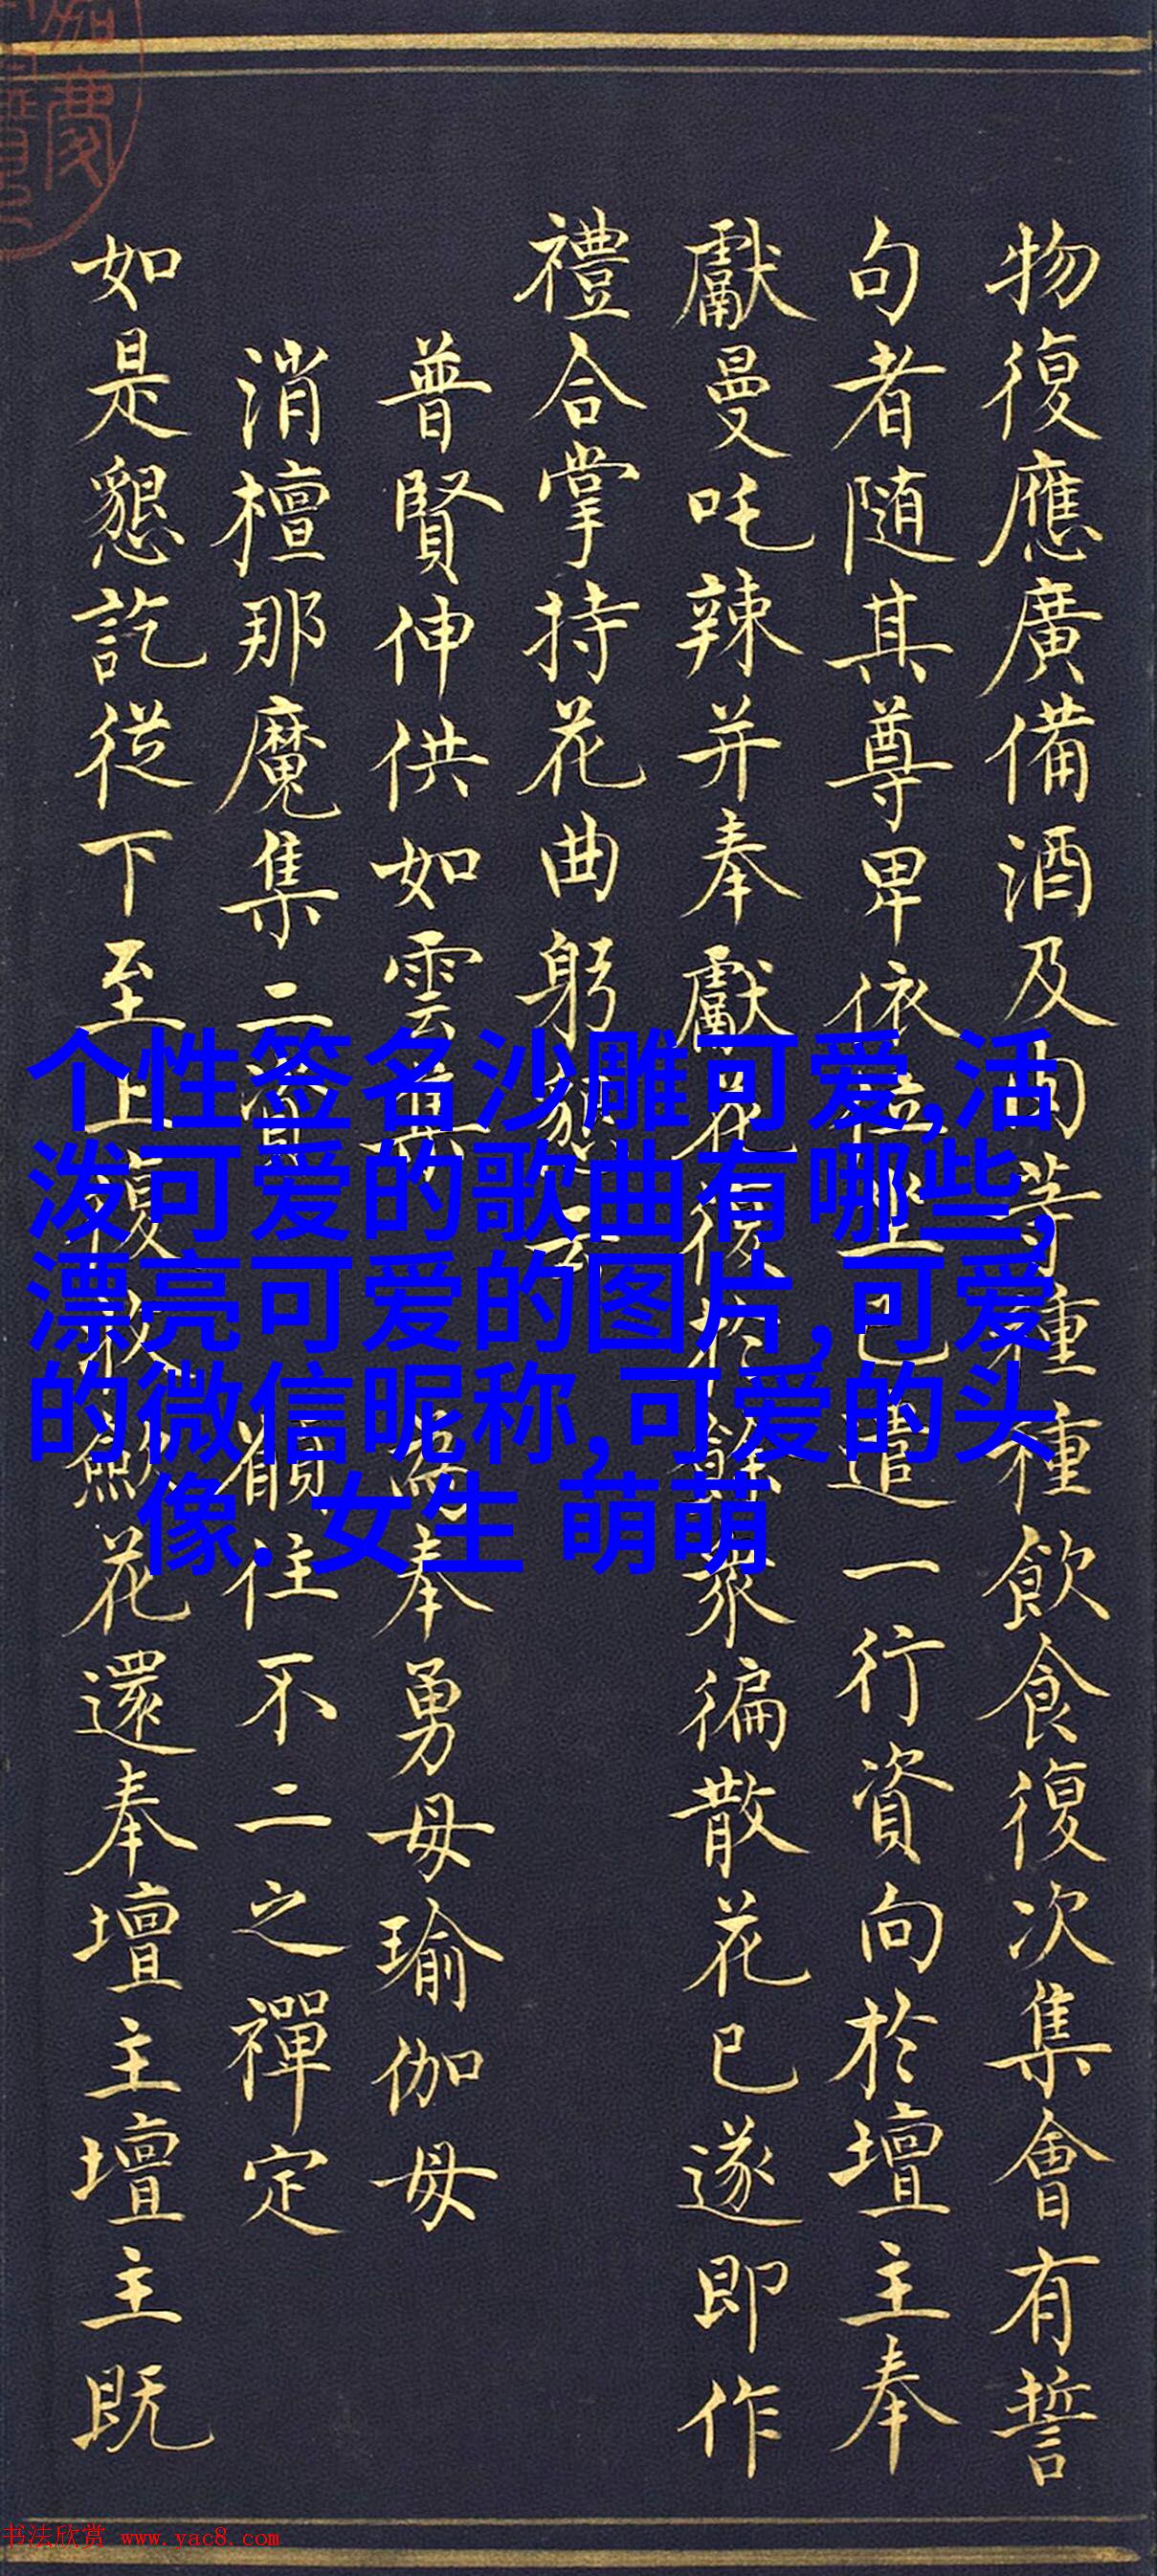 物復應廣備酒及肉等種種飲食復次集會有誓
句者随其尊卑依位坐已遣一行資向於壇主奉
獻曼吒辣并奉獻花後於餘眾徧散花已遂即作
禮合掌持花曲躬懇云
普賢伸供如雲集 為奉勇母瑜伽母
消檀那魔集二資 願住不二之禪定
如是懇訖從下至上復收斂花還奉壇主壇主既
个性签名沙雕可爱,活
泼可爱的歌曲有哪些,
漂亮可爱的图片,可爱
的微信昵称,可爱的头
像. 女生 萌萌
书法欣赏 www.yac8.com